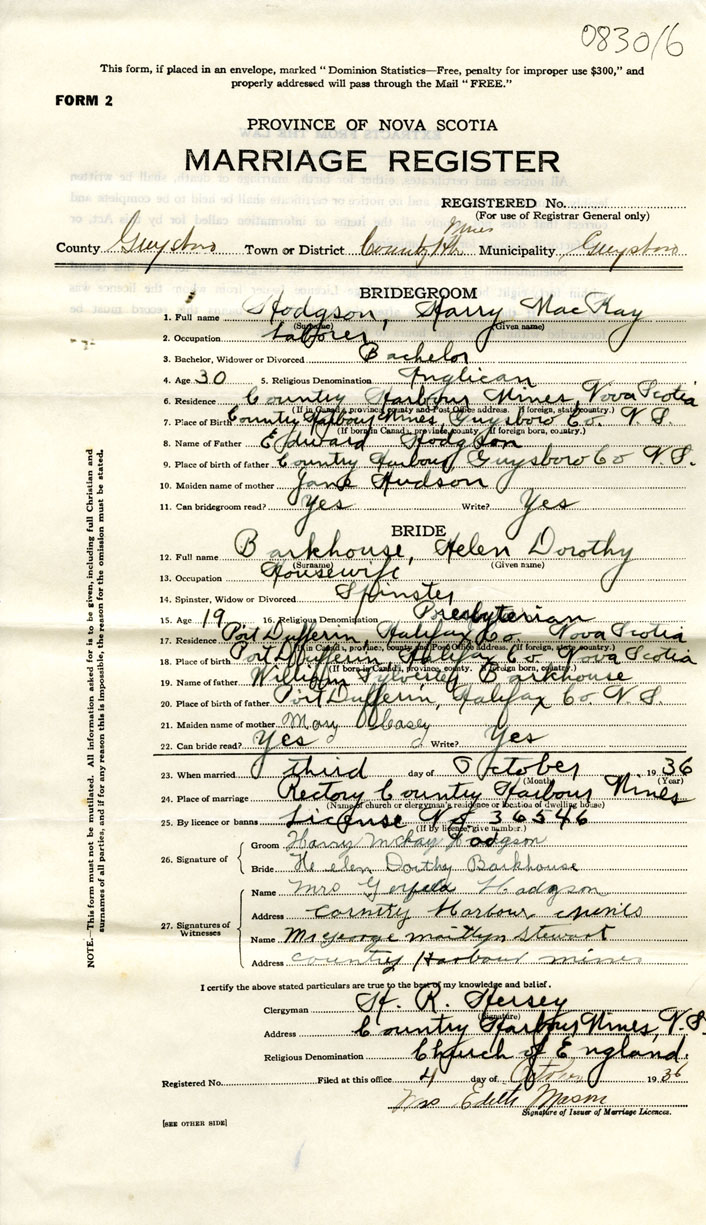 083016
This form, if placed in an envelope, marked "Dominion Statistics—Free, penalty for improper use $300," and
properly addressed will pass through the Mail "FREE."
FORM 2
PROVINCE OF NOVA SCOTIA
MARRIAGE REGISTER
REGISTERED No.
(For use of Registrar General only)
County Guysboro Town or District Country Hb. Mines Municipality Guysboro
BRIDEGROOM
1. Full name Hodgson, Harry MacKay
(Surname) (Given name)
2. Occupation Laborer
3. Bachelor, Widower or Divorced Bachelor
4. Age 30 5. Religious Denomination Anglican
6. Residence Country Harbour Mines, Nova Scotia
(If in Canada, province, county and Post Office address. If foreign, state country.)
7. Place of Birth Country Harbour Mines, Guysboro Co. N.S.
(If born in Canada, province, county. If foreign born, country.)
8. Name of Father Edward Hodgson
9. Place of birth of father Country Harbour Guysboro Co N.S.
10. Maiden name of mother Jane Hudson
11. Can bridegroom read? Yes Write? Yes
BRIDE
12. Full name Barkhouse, Helen Dorothy
(Surname) (Given name)
13. Occupation Housewife
14. Spinster, Widow or Divorced Spinster
15. Age 19 16. Religious Denomination Presbyterian
17. Residence Port Dufferin, Halifax Co. Nova Scotia
(If in Canada, province, county and Post Office address. If foreign, state country.)
18. Place of birth Port Dufferin, Halifax Co. Nova Scotia
(If born in Canada, province, county. If foreign born, country.)
19. Name of father William Sylvester Barkhouse
20. Place of birth of father Port Dufferin, Halifax Co. N.S.
21. Maiden name of mother Mary
22. Can bride read? Yes Write? Yes
23. When married third day of October 1936
(Month) (Year)
24. Place of marriage Rectory Country Harbour Mines
(Name of church or clergyman's residence or location of dwelling house)
25. By licence or banns License No 36546
(If by licence, give number.)
26. Signature of Groom Harry McKay Hodgson
Bride Helen Dorthy Barkhouse
27. Signatures of Witnesses Name Mrs Hodgson
Address Country Harbour
Name George Maitlyn Stewart
Address Country Harbour mines
I certify the above stated particulars are true to the best of my knowledge and belief.
Clergyman H. R. Hersey
(Signature)
Address Country Harbour Mines, N.S.
Religious Denomination Church of England.
Registered No. Filed at this office 4 day of October 1936
Mrs Edith Mason
Signature of Issuer of Marriage Licences.
[SEE OTHER SIDE]
NOTE.—This form must not be mutilated. All information asked for is to be given, including full Christian and
surnames of all parties, and if for any reason this is impossible, the reason for the omission must be stated.